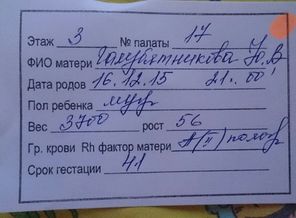 Этаж 3 № палаты 17
ФИО матери Голубятникова Ю.В
Дата родов 16.12.15 21.00
Пол ребенка муж
Вес 3700 рост 56
Гр. крови Rh фактор матери A(II) полож
Срок гестации 41